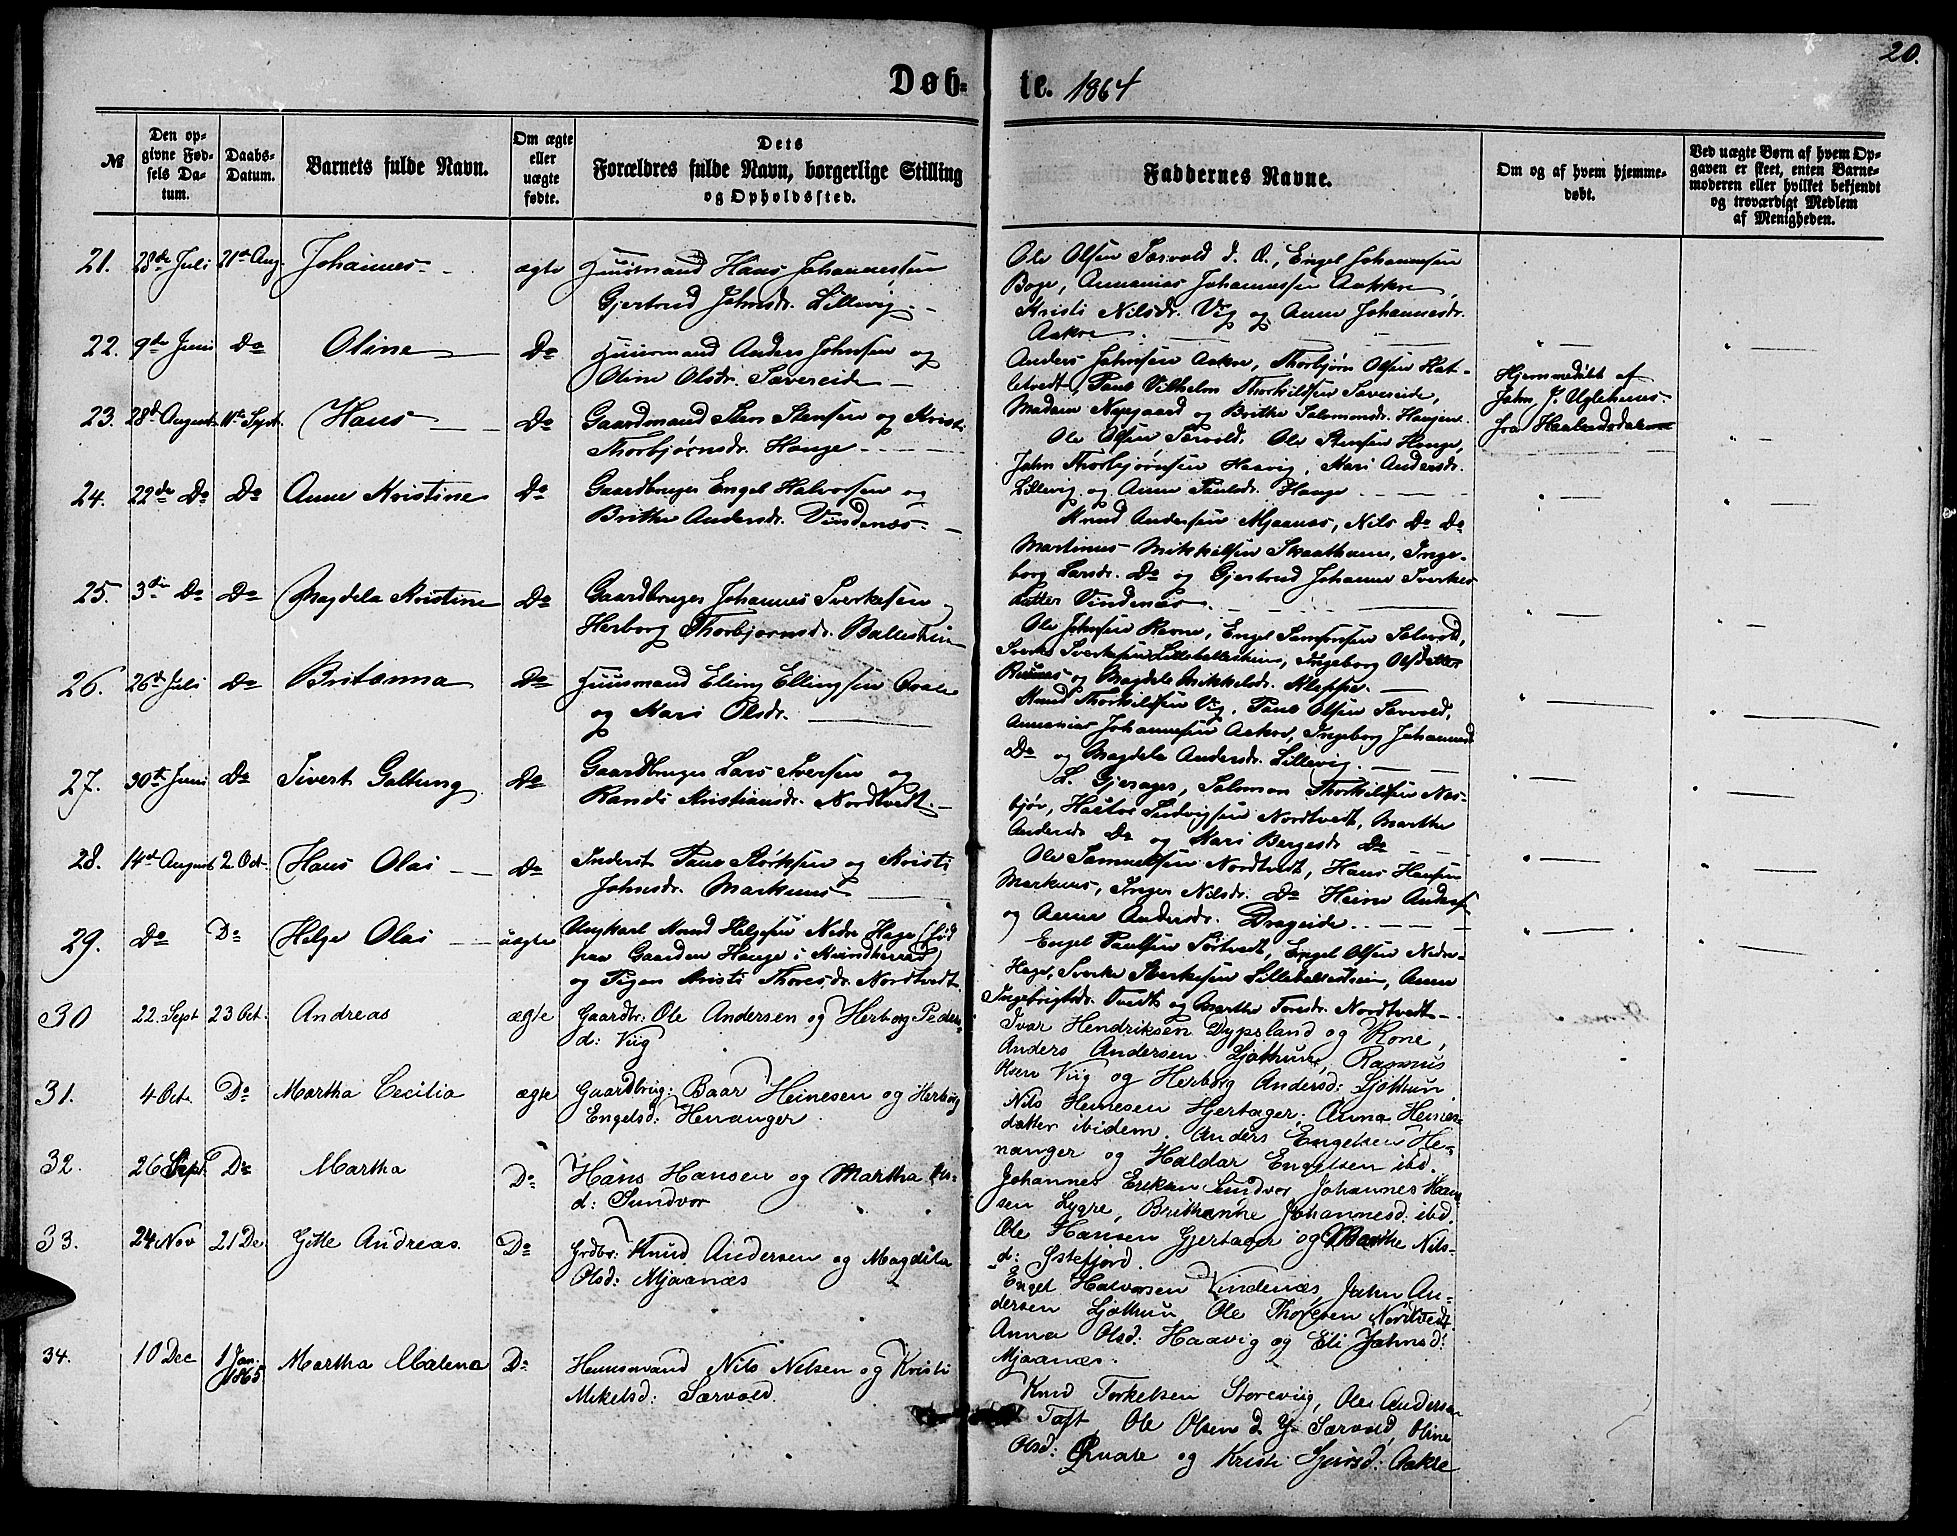 20.
Døb-te. 1864
№
Den op-
givne Fød-
sels Da-
tum.
Daabs-
Datum.
Barnets fulde Navn.
Om ægte
eller
uægte
fødte.
Dets
Forældres fulde Navn, borgerlige Stilling
og Opholdssted.
Faddernes Navne.
Om og af hvem hjemme-
døbt.
Ved uægte Børn af hvem Op-
gaven er skeet, enten Barne-
moderen eller hvilket bekjendt
og troværdigt Medlem
af Menigheden.
21. 28de Juli 21de Aug. Johannes ægte Huusmand Hans Johannessen
Gjertrud Johnsdr. Lillevig
Ole Olsen Særvold d. Æ., Engel Johannesen
Boge, Annanias Johannessen Aakre,
Kristi Nilsdr. Vig og Anne Johannesdr.
Aakre
22. 9de Juni Do Oline Do Huusmand Anders Johnsen og
Oline Olsdr. Sævereide
Anders Johnsen Aakre, Thorbjørn Olsen Kat-
letvedt, Paul Vilhelm Thorkildsen Sævereide,
Madam Nygaard og Britha Salomonsdr. Haugen
Hjemmedøbt af
John J. Uglehuus
fra Haalandsdalen
23. 28de August 11te Sept. Hans Do Gaardmand Sten Stensen og Kristi
Thorbjørnsdr. Hauge
Ole Olsen Særvold, Ole Stensen Hauge,
John Thorbjørnsen Haavig, Mari Andersdr.
Lillevig og Anna Paulsdr. Hauge
24. 22de Do Do Anne Kristine Do Gaardbruger Engel Halvorsen og
Britha Andersdr. Vindenæs
Knud Andersen Mjaanæs, Nils Do Do
Martinus Mikkelsen Skaathamn, Inge-
borg Larsdr. Do og Gjertrud Johanne Sverkes-
datter Vindenæs
25. 3die Do Do Magdela Kristine Do Gaardbruger Johannes Sverkesen og
Herborg Thorbjørnsdr. Ballesheim
Ole Johnsen Ravne, Engel Samsonsen Solvold,
Sverke Sverkesen Lilleballesheim, Ingeborg Olsdatter
og Magdela Mikkelsdr. Kleppe.
26. 26de Juli Do Britanna Do Huusmand Elling Ellingsen
og Mari Olsdr.
Knud Thorkildsen Vig, Paul Olsen Særvold,
Annanias Johannesen Aakre, Ingeborg Johannesd.
Do og Magdela Andersdr. Lillevig.
27. 30te Juni Do Sivert Galtung Do Gaardbruger Lars Iversen og
Randi Kristiansdr. Nordtvedt.
L. Gjersager, Salomon Thorkildsen Næs-
bjør, Hastor Ludvigsen Nordtvedt, Marthe
Andersdr. Do og Mari Børgesdr. Do
28. 14de August 2 Oct. Hans Olai Do Inderst Paul Størksen og Kristi
Johnsdr. Markuus
Ole Samuelsen Nordtvedt, Hans Hansen
Markuus, Inger Nilsdr. Do Heine Anders.
og Anne Andersdr. Drageide
29. Do Do Helge Olai uægte Ungkarl Knud Helgesen Nedre Hage (født
paa Gaarden Hauge i Kvindherred)
og Pigen Kristi Thoresdr. Nordtvedt.
Engel Paulsen Sørtvedt, Engel Olsen Nedre-
Hage, Sverke Sverkesen Lilleballesheim, Anna
Ingebrigtsdr. Tvedt og Marthe Toresdr. Nordtvedt.
30 22. Sept 23 Oct. Andreas ægte Gaardbr: Ole Andersen og Herborg Peders-
d: Viig
Ivar Hendriksen Dypsland og Kone,
Anders Andersen Ljøthun, Rasmus
Viig og Herborg Andersd: Ljøthun
31. 4 Oct. Do Martha Cecilia ægte Gaardbrug: Baar Heinesen og Herborg
Engelsd: Henanger
Nils Heinesen Hjertager, Anna Heines-
datter ibidem, Anders Engelsen He-
nanger og Haldar Engelsen ibd.
32. 26 Sept Do Martha Do Hans Hansen og Martha Ols-
d: Sundvor
Johannes Eriksen Sundvor, Johannes Han-
sen Lygre, Brithanne Johannesd: ibd.
Ole Hansen Gjertager og Marthe Nils-
d: Østefjord.
33. 24 Nov 21 De Gitle Andreas Do Grdbr: Knud Andersen og Magdela
Olsd: Mjaanæs
Engel Halvorsen Vindenæs, John An-
dersen Ljøthun Ole Thoresen Nordtvedt
Anna Olsd: Haavig og Eli Johnsd:
Mjaanæs.
34. 10 Dec 1 Jan 1865 Martha Malena Do Huusmand Nils Nelsen og Kristi
Mikelsd: Særvold.
Knud Torkelsen Storeviig, Ole Andersen
Tøft, Ole Olsen d. Y. Særvold, Oline
Olsd: og Kristi Sjursd: Aakre